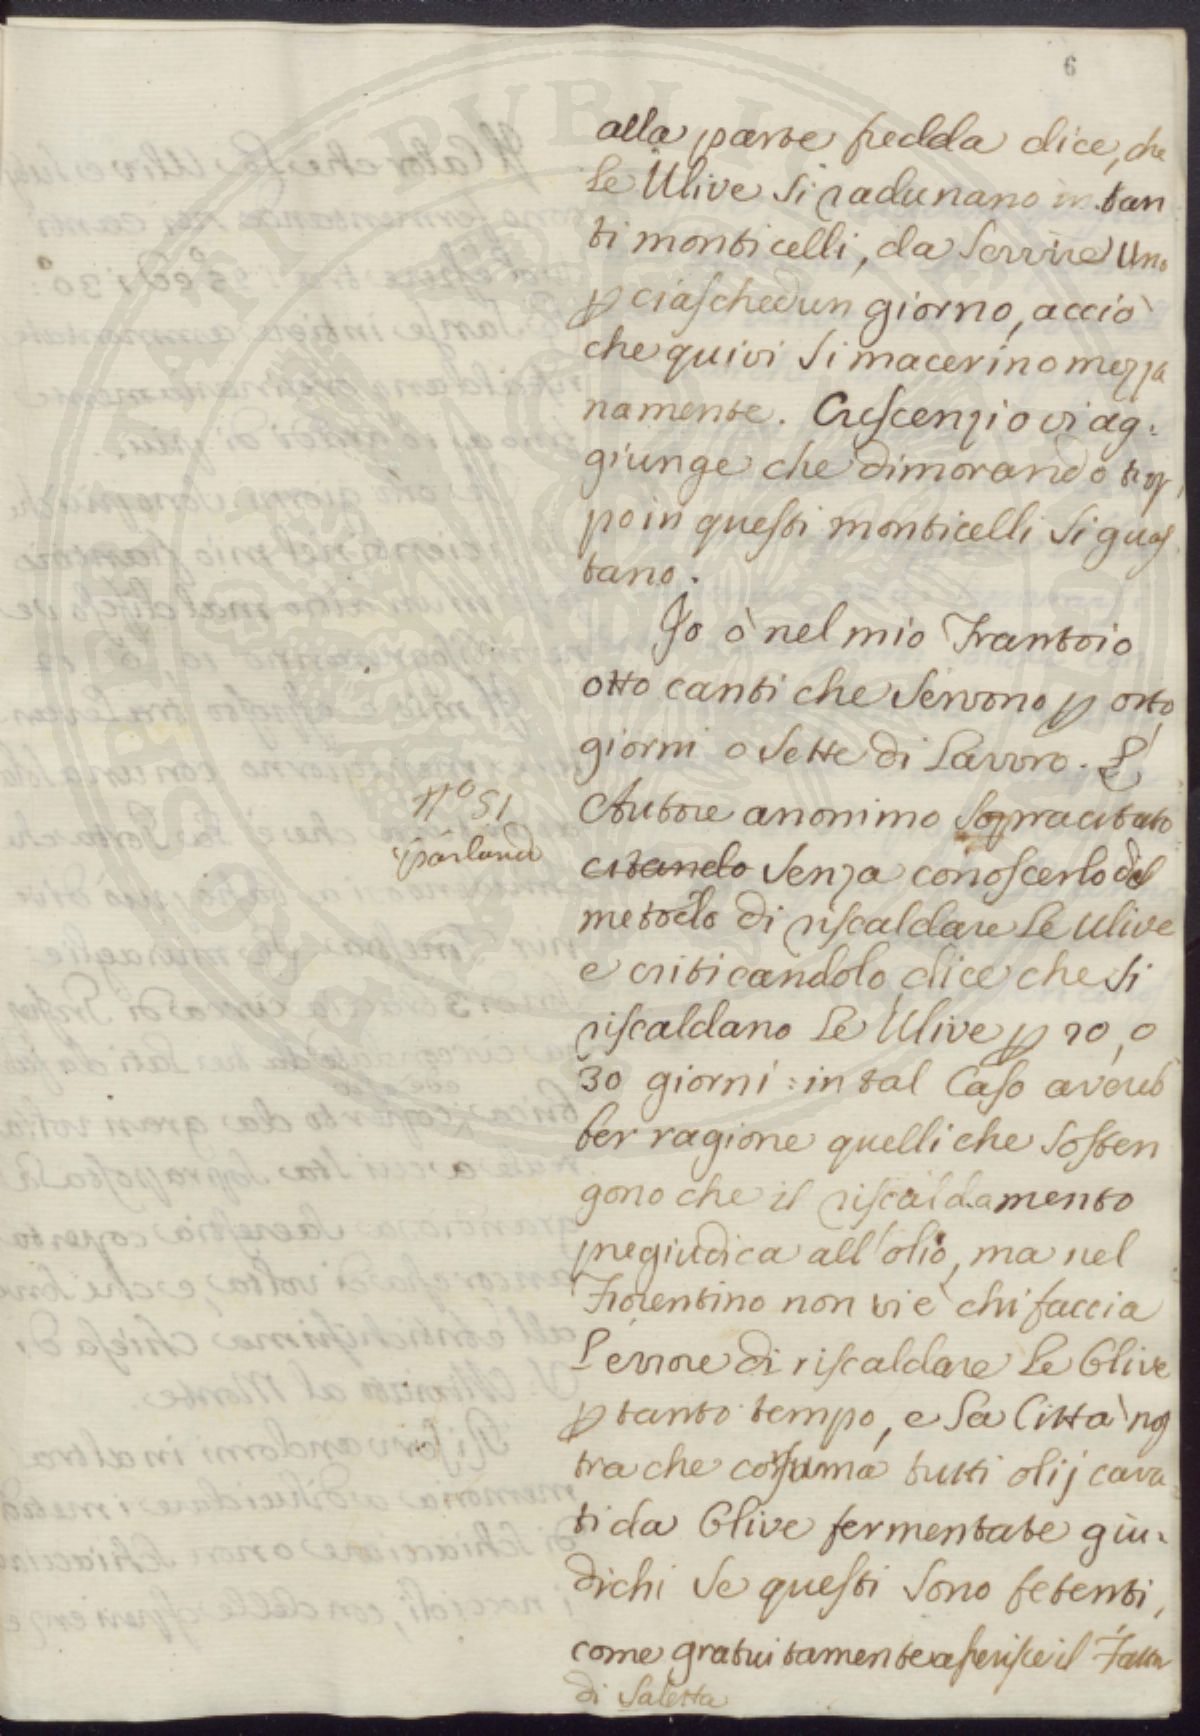 6
alla parte fredda dice, che
le Ulive si radunano in tan
ti monticelli, da servire Uno
p ciaschedun giorno, acciò
che quivi si macerino mezza
namente. Crescenzio vi ag:
giunge che dimorando trop
po in questi monticelli si guas
tano.
Io ò nel mio Frantoio
otto canti che servono p otto
giorni o sette di Lavoro. L'
Autore anonimo sopracitato
citando senza conoscerlo del
metodo di riscaldare le Ulive
e criticandolo, dice che si
riscaldano le Ulive p 20, o
30 giorni: in tal caso avereb
ber ragione quelli che sosten
gono che il riscaldamento
pregiudica all'olio, ma nel
Fiorentino non vi è chi faccia
l'errore di riscaldare le Olive
p tanto tempo, e la Città nos
tra che consuma tutti olij cava
ti da Olive fermentate giu-
dichi se questi sono fetenti,
come gratuitamente asserisce il
di Saletta
n.° 51
parland